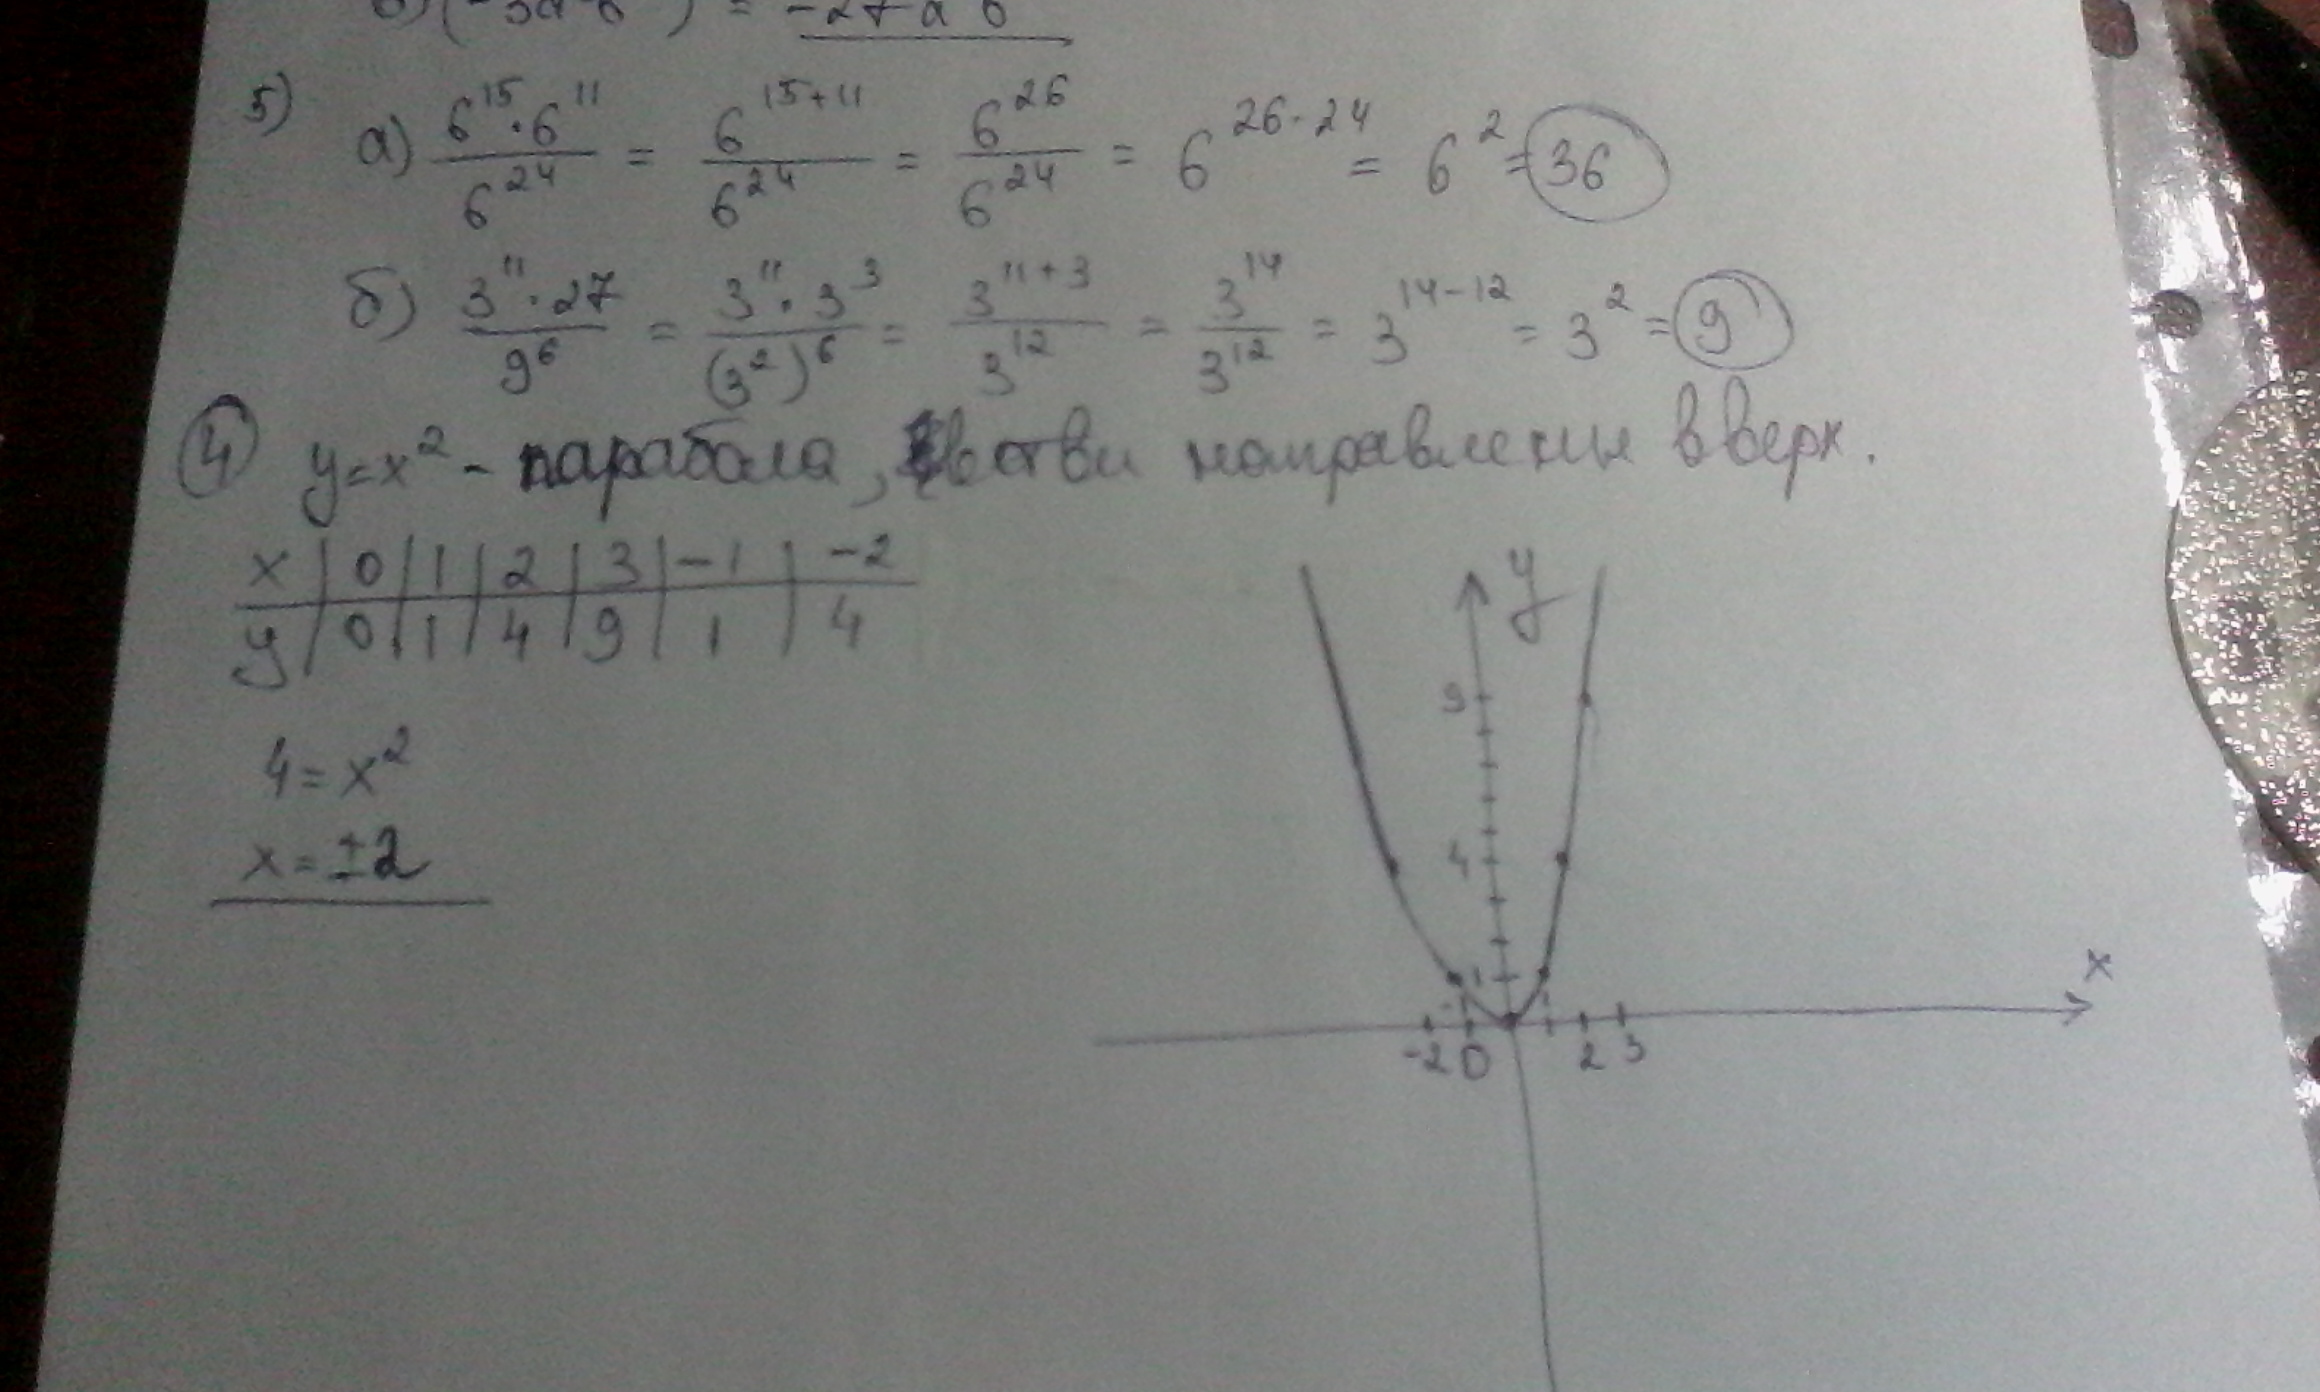 5)
а) 6^15 · 6^11 / 6^24 = 6^(15+11) / 6^24 = 6^26 / 6^24 = 6^(26-24) = 6^2 = 36
б) 3^11 · 27 / 9^6 = 3^11 · 3^3 / (3^2)^6 = 3^(11+3) / 3^12 = 3^14 / 3^12 = 3^(14-12) = 3^2 = 9
4 y=x^2 - парабола, ветви направлены вверх.
x | 0 | 1 | 2 | 3 | -1 | -2
y | 0 | 1 | 4 | 9 | 1 | 4
4 = x^2
x = ±2
y
9
4
1
x
-2 0 2 3